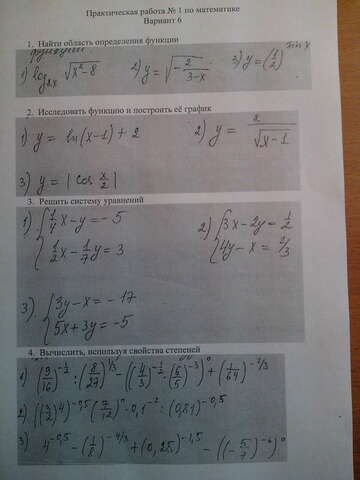 Практическая работа № 1 по математике
Вариант 6
1. Найти область определения функции
функции
1) log₂ₓ √(x²-8) 2) y = √(-2/(3-x)) 3) y = (1/2)^(sin x)
2. Исследовать функцию и построить её график
1) y = ln(x-1) + 2 2) y = 2/√(x-1)
3) y = |cos x/2|
3. Решить систему уравнений
1) { 1/4 x - y = -5 2) { 3x - 2y = 1/2
1/2 x - 1/7 y = 3 4y - x = 2/3
3) { 3y - x = -17
5x + 3y = -5
4. Вычислить, используя свойства степеней
1) (9/16)^(-1/2) : (8/27)^(1/3) - ((4/3)^(-1/2) : (6/5)^(-3))^0 + (1/64)^(-2/3)
2) ((3/2)^4)^(-0,5) (7/12)^0 · 0,1^(-2) : (0,81)^(-0,5)
3) 4^(-0,5) - (1/8)^(-4/3) + (0,25)^(-1,5) - ((-5/7)^(-6))^0